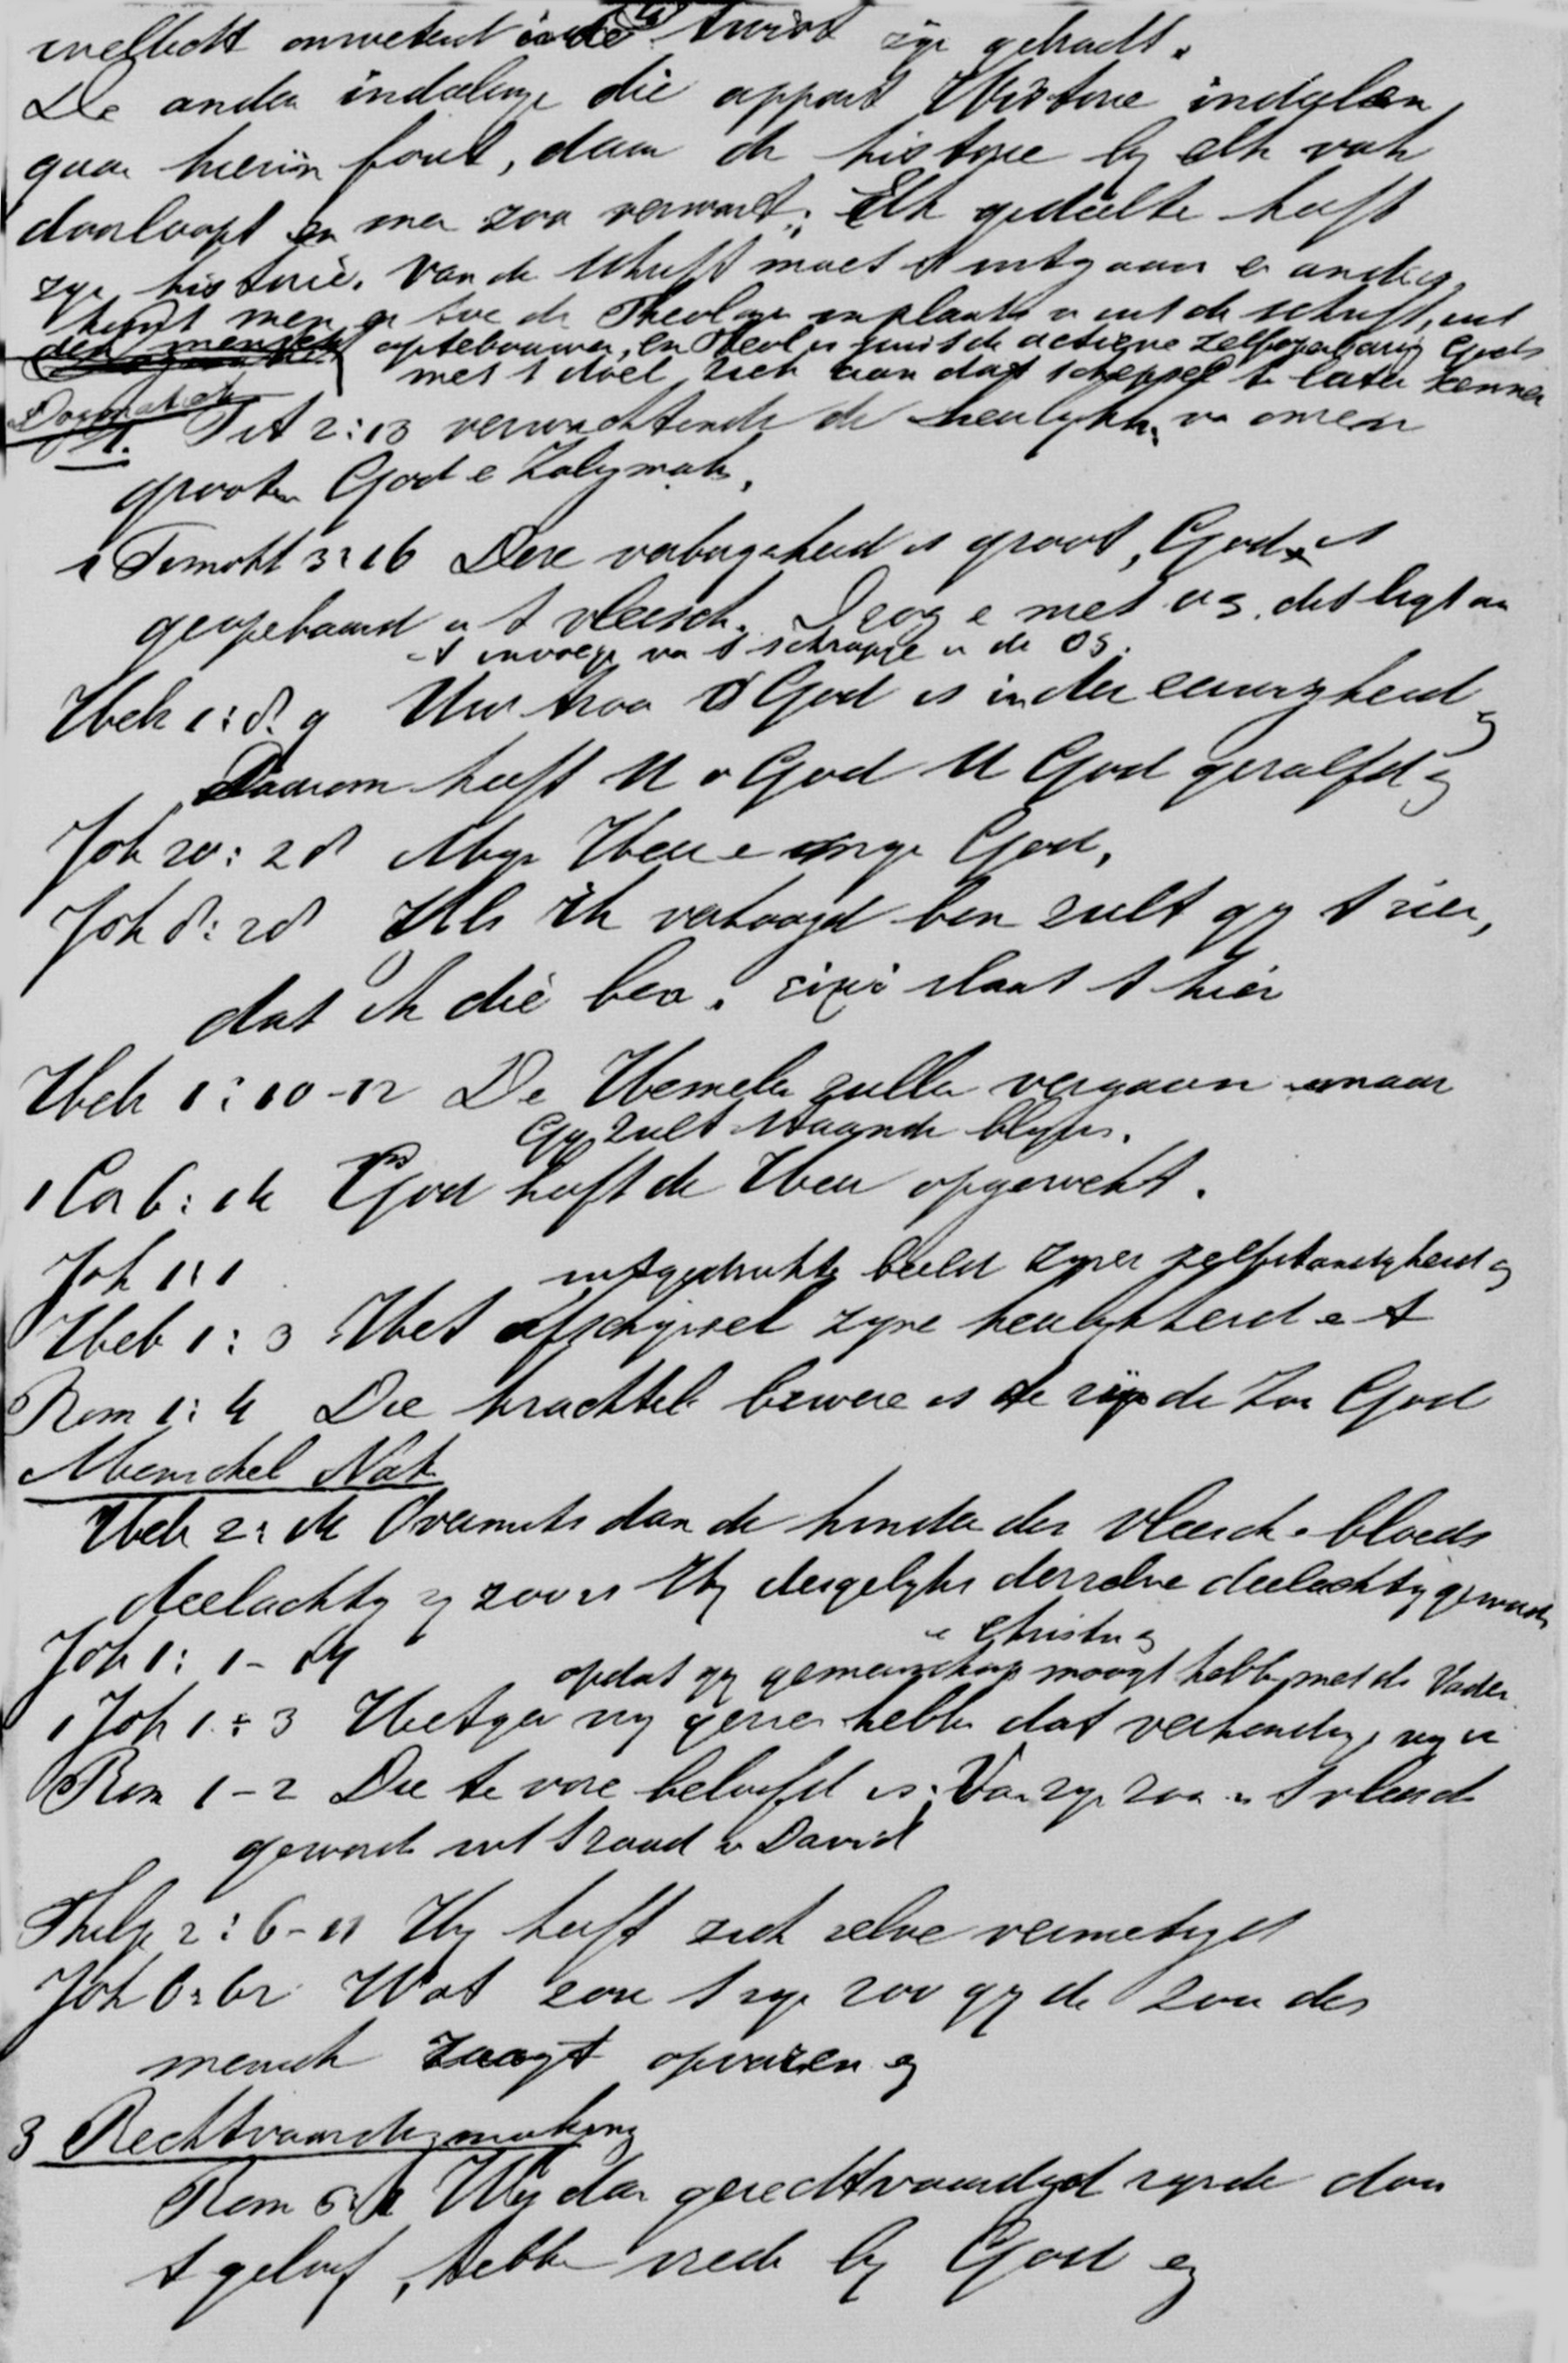 onwetend in de twist zijn gebracht.
De andere indeelinge die appart Historie indeelen,
gaan hierin fout, daar de historie by elk vak
doorloopt en men zoo verwart; Elk gedeelte heeft
zyn historie. Van de Schrift moet t uitgaan en anders
komt men er toe de Theologie in plaats v uit de schrift, uit
den mensch optebouwen, en Theol is juist de actieve zelfopenbaring Gods
met t doel zich aan dat schepsel te laten kennen
Dogmatiek
1. Tit 2:13 verwachtende de heerlykh. va onzen
grooten God e Zaligmak.
1 Timoth 3:16 Deze verborgenheid is groot, God is
geopenbaard in t vleesch. met os. dit ligt aan
t invoege va t schrapje in de OS.
Heb 1:8.9 Uw troon o God is in der eeuwigheid
Daarom heeft U o God U God gezalfd
Joh 20:28 Myn Heer e myn God,
Joh 8:28 Als ik verhoogd ben zult gy t zien,
dat ik die ben. εἰμι slaat t hier
Heb 1:10-12 De Hemelen zullen vergaan maar
Gy zult staande blyven.
1 Cor 6:14 God heeft de Heer opgewekt.
Joh 1:1
uitgedrukte beeld zyner zelfstandigheid
Heb 1:3 Het afschijnsel zyne heerlykheid e t
Rom 1:4 Die krachtel. bewezen is te zijn de Zoon God
Menschel Nat.
Heb 2:14 Overmits dan de kinderen des vleesch e bloeds
deelachtig zy zoo is Hy desgelyks derzelve deelachtig geworden
Joh 1:1-14
e Christus
opdat gy gemeenschap moogt hebben met de Vader
1 Joh 1:3 Hetgeen wy gezien hebben dat verkondigen wy u
Rom 1-2 Die te voren beloofd is: Van zyn zoon in t vleesch
geworden uit t zaad v David
Philp 2:6-11 Hy heeft zich zelve vernietigd
Joh 6:62 Wat zou t zyn zoo gy de Zoon des
mensch zaagt opvaren
3 Rechtvaardigmaking
Rom 5:1 Wij dan gerechtvaardigd zynde door
t geloof, hebben vrede by God